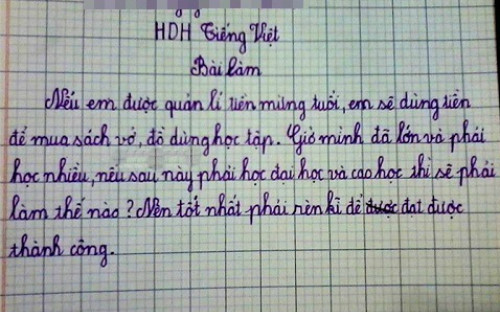 HDH Tiếng Việt
Bài làm
Nếu em được quản lí tiền mừng tuổi, em sẽ dùng tiền
để mua sách vở, đồ dùng học tập. Giờ mình đã lớn và phải
học nhiều, nếu sau này phải học đại học và cao học thì sẽ phải
làm thế nào? Nên tốt nhất phải rèn kĩ để đạt được
thành công.